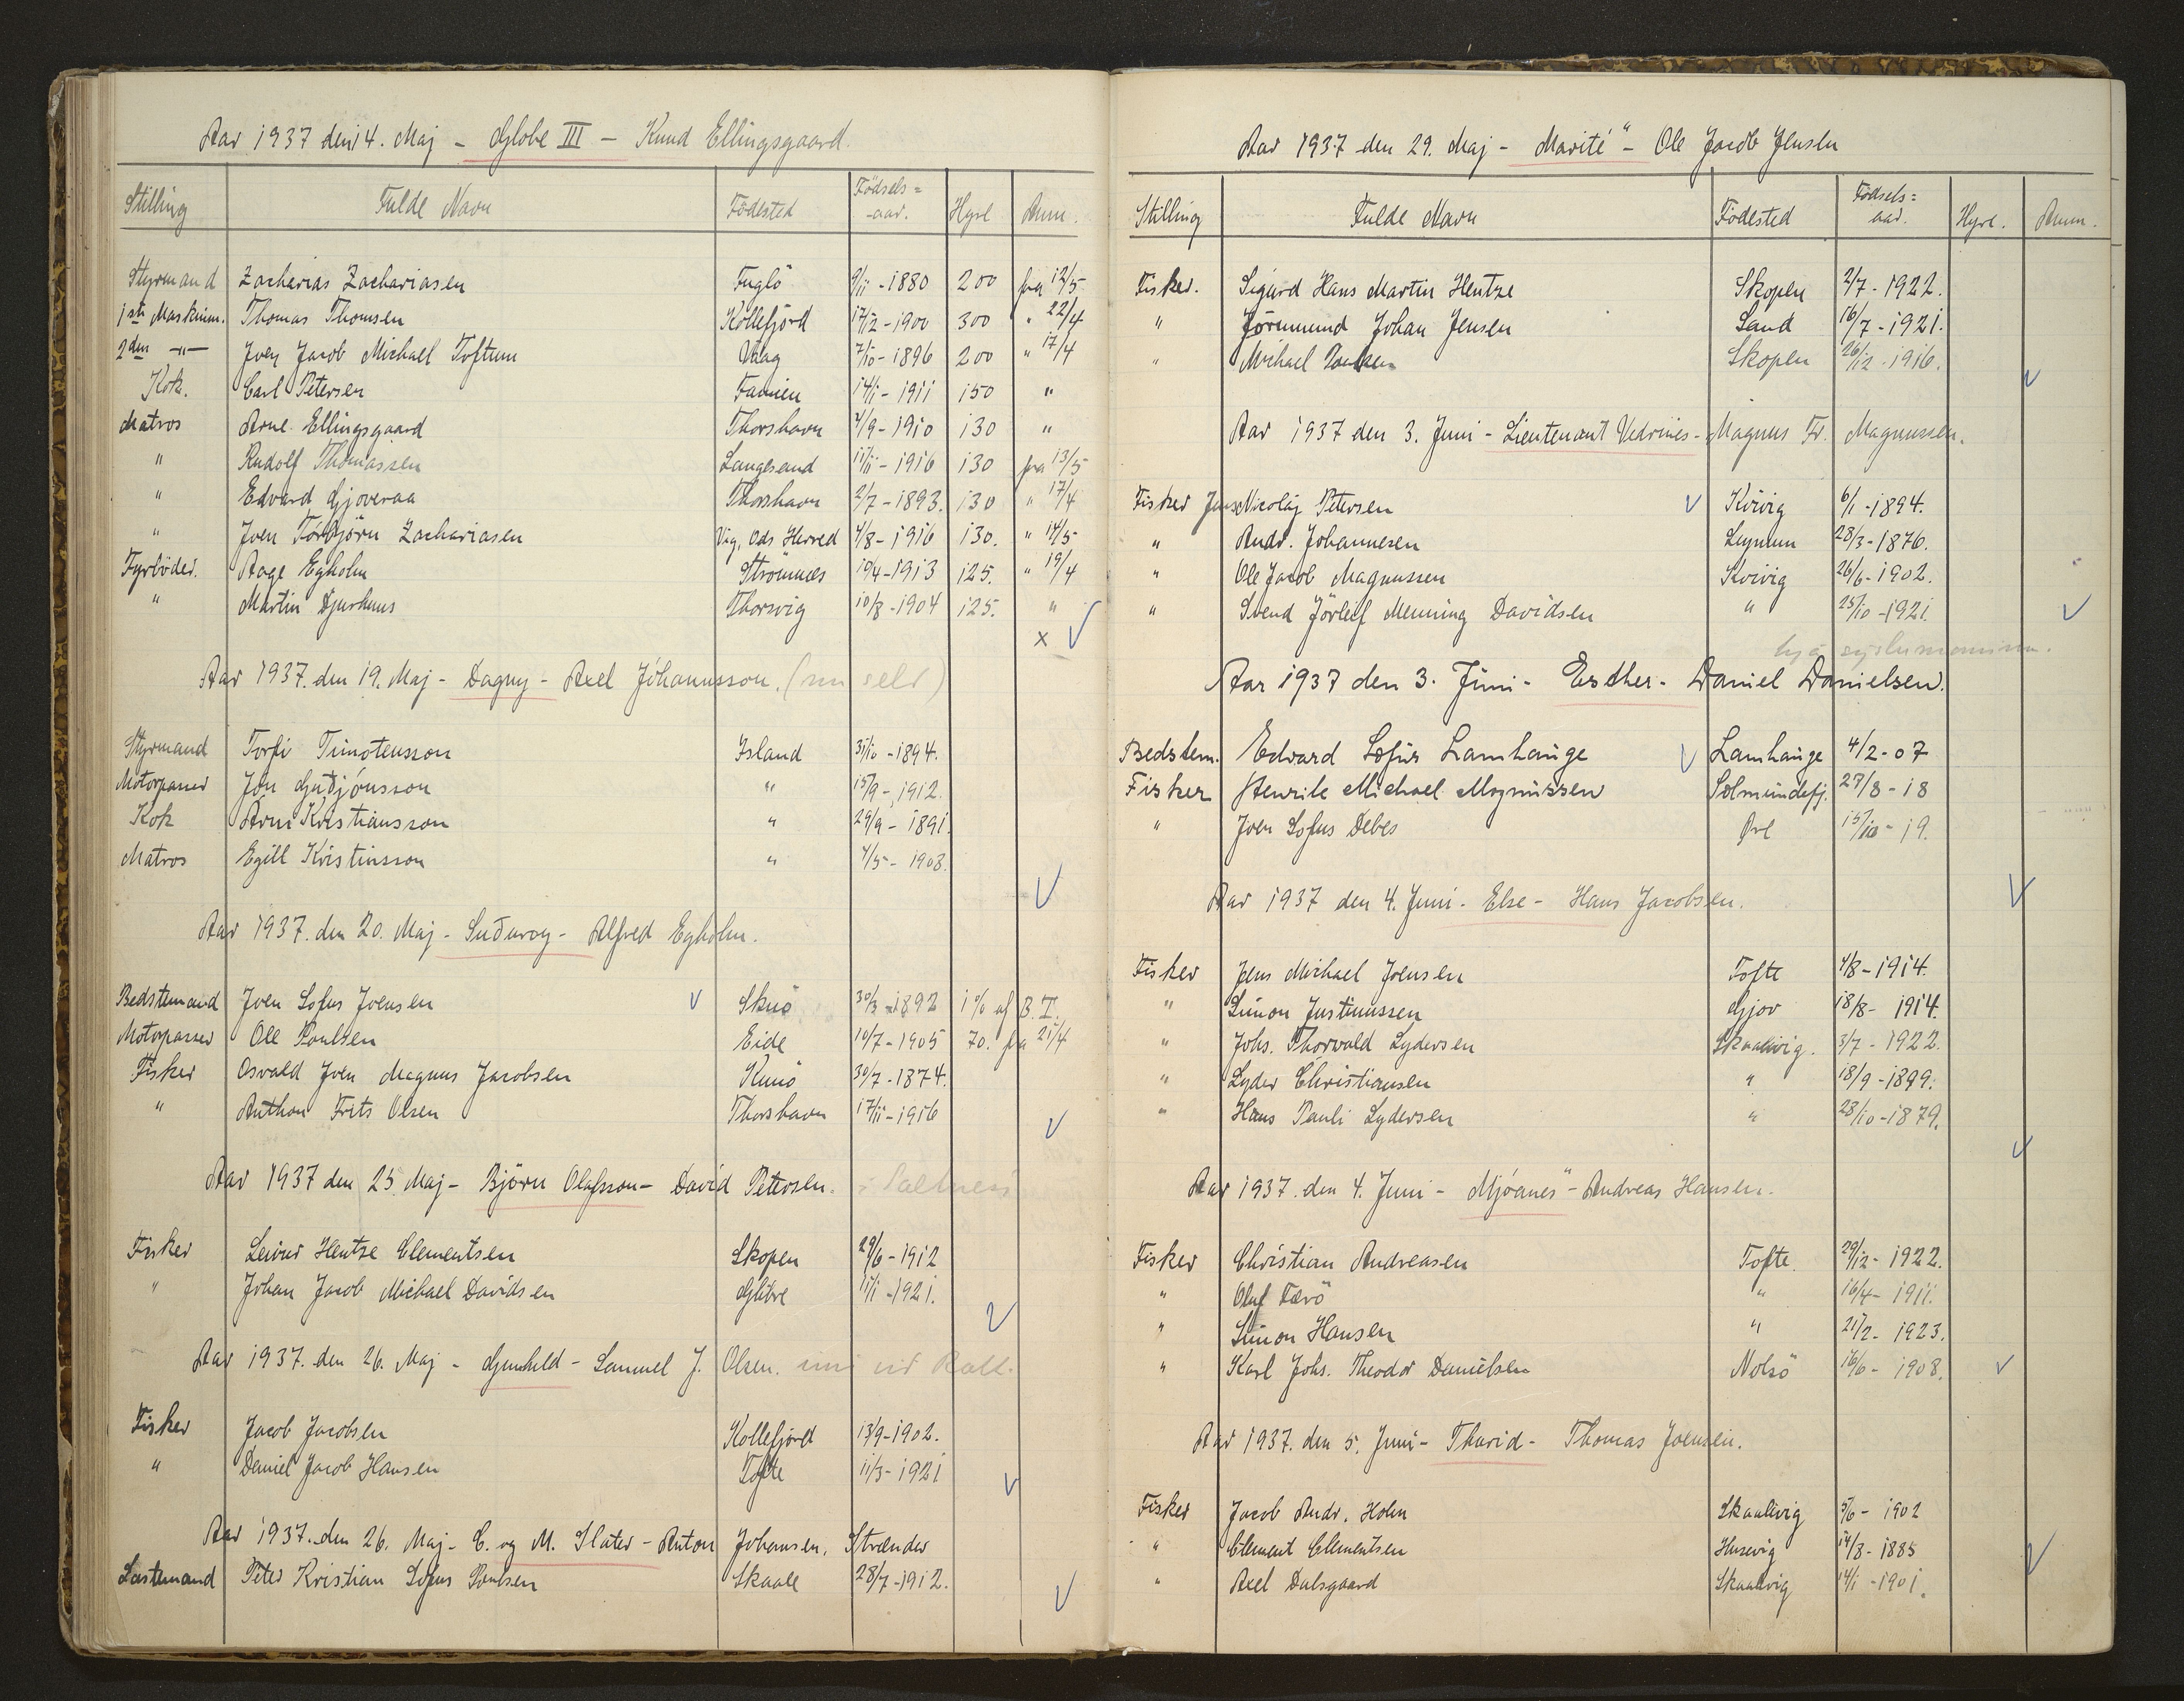 Aar 1937 den 14. Maj - Globe III - Knud Ellingsgaard.
Stilling Fulde Navn Födested Födsels=aar. Hyre Anm.
Styrmand Zacharias Zachariasen Fuglö 9/11-1880 200 fra 12/5
1ste Maskinm. Thomas Thomsen Kollefjord 17/12-1900 300 " 22/4
2den -"- Joen Jacob Michael Toftum Vaag 7/10-1896 200 " 17/4
Kok. Carl Petersen Famien 14/1-1911 150 "
Matros Arne Ellingsgaard Thorshavn 4/9-1910 130 "
" Rudolf Thomassen Langesand 11/11-1916 130 fra 13/5
" Edvard Gjoveraa Thorshavn 2/7-1893. 130 " 17/4
" Joen Torbjörn Zachariasen Vig, Ods Herred 4/8-1916 130. " 14/5
Fyrböder. Aage Egholm Strömnæs 19/4-1913 125. " 19/4
" Martin Djurhuus Thorsvig 10/8-1904 125. "
x
Aar 1937. den 19. Maj - Dagny - Axel Jóhannsson. (nu seld)
Styrmand Torfi Timoteusson Island 31/10-1894.
Motorpasser Jón Guðjónsson " 15/9-1912.
Kok Árni Kristiansson " 29/9-1891.
Matros Egill Kristinsson " 4/5-1908.
Aar 1937. den 20. Maj - Suðuroy - Alfred Egholm.
Bedstemand Joen Sofus Joensen Skuö 30/3-1892 1% af B.T.
Motorpasser Ole Poulsen Eide 10/7-1905 70. fra 21/4
Fisker Osvald Joen Magnus Jacobsen Kunö 30/7-1874.
" Anthon Frits Olsen Thorshavn 17/11-1916
Aar 1937 den 25. Maj - Björn Olafsson - David Petersen. : Saltnes
Fisker Leivur Hentze Clementsen Skopen 29/6-1912
" Johan Jacob Michael Davidsen Glibre 11/1-1921.
Aar 1937. den 26. Maj - Gunhild - Samuel J. Olsen.
Fisker Jacob Jacobsen Kollefjord 13/9-1902.
" Daniel Jacob Hansen Tofte 11/3-1921
Aar 1937. den 26. Maj - C. og M. Slater - Anton Johansen, Strænder
Lastemand Peter Kristian Sofus Poulsen Skaale 28/7-1912.
Aar 1937 den 29. Maj - Marité" - Ole Jacob Jensen
Stilling Fulde Navn Födested Födsels=aar. Hyre. Anm.
Fisker. Sigurd Hans Martin Hentze Skopen 2/7-1922.
" Jörmund Johan Jensen Sand 16/7-1921.
" Michael Poulsen Skopen 26/12-1916.
Aar 1937 den 3. Juni - Lieutenant Vedrines - Magnus Fr. Magnussen.
Fisker Jens Nicolaj Petersen Kvivig 6/1-1894.
" Andr. Johannesen Leynum 28/3-1876.
" Ole Jacob Magnussen Kvivig 26/6-1902.
" Svend Jörleif Menning Davidsen " 25/10-1921.
hjá sýslumannin.
Aar 1937 den 3. Juni - Esther - Daniel Danielsen.
Bedstem. Edvard Sofus Lamhauge Lamhauge 4/2-07
Fisker Henrik Michael Magnussen Solmundefj. 27/8-18
" Joen Sofus Debes Øre 15/10-19.
Aar 1937 den 4. Juni - Else - Hans Jacobsen.
Fisker Jens Michael Joensen Tofte 4/8-1914.
" Simon Justinussen Gjov 18/8-1914.
" Johs. Thorvald Lydersen Skaalevig. 3/7-1922.
" Lyder Christiansen " 18/9-1899.
" Hans Pauli Lydersen " 28/10-1879.
Aar 1937. den 4. Juni - Mjóanes" - Andreas Hansen.
Fisker Christian Andreasen Tofte. 29/12-1922.
" Oluf Færö " 16/4-1911.
" Simon Hansen " 21/2-1923.
" Karl Johs. Theodor Danielsen Nolsö 16/6-1908.
Aar 1937. den 5. Juni - Thurid - Thomas Joensen.
Fisker Jacob Andr. Holm Skaalevig 5/6-1902
" Clement Clementsen Husevig 14/8-1885
" Axel Dalsgaard Skaalevig 14/1-1901.